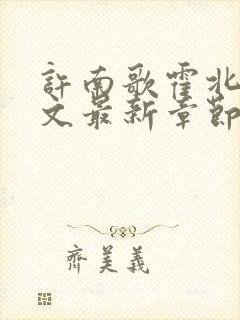 許南歌霍北
文最新章節
齊美義